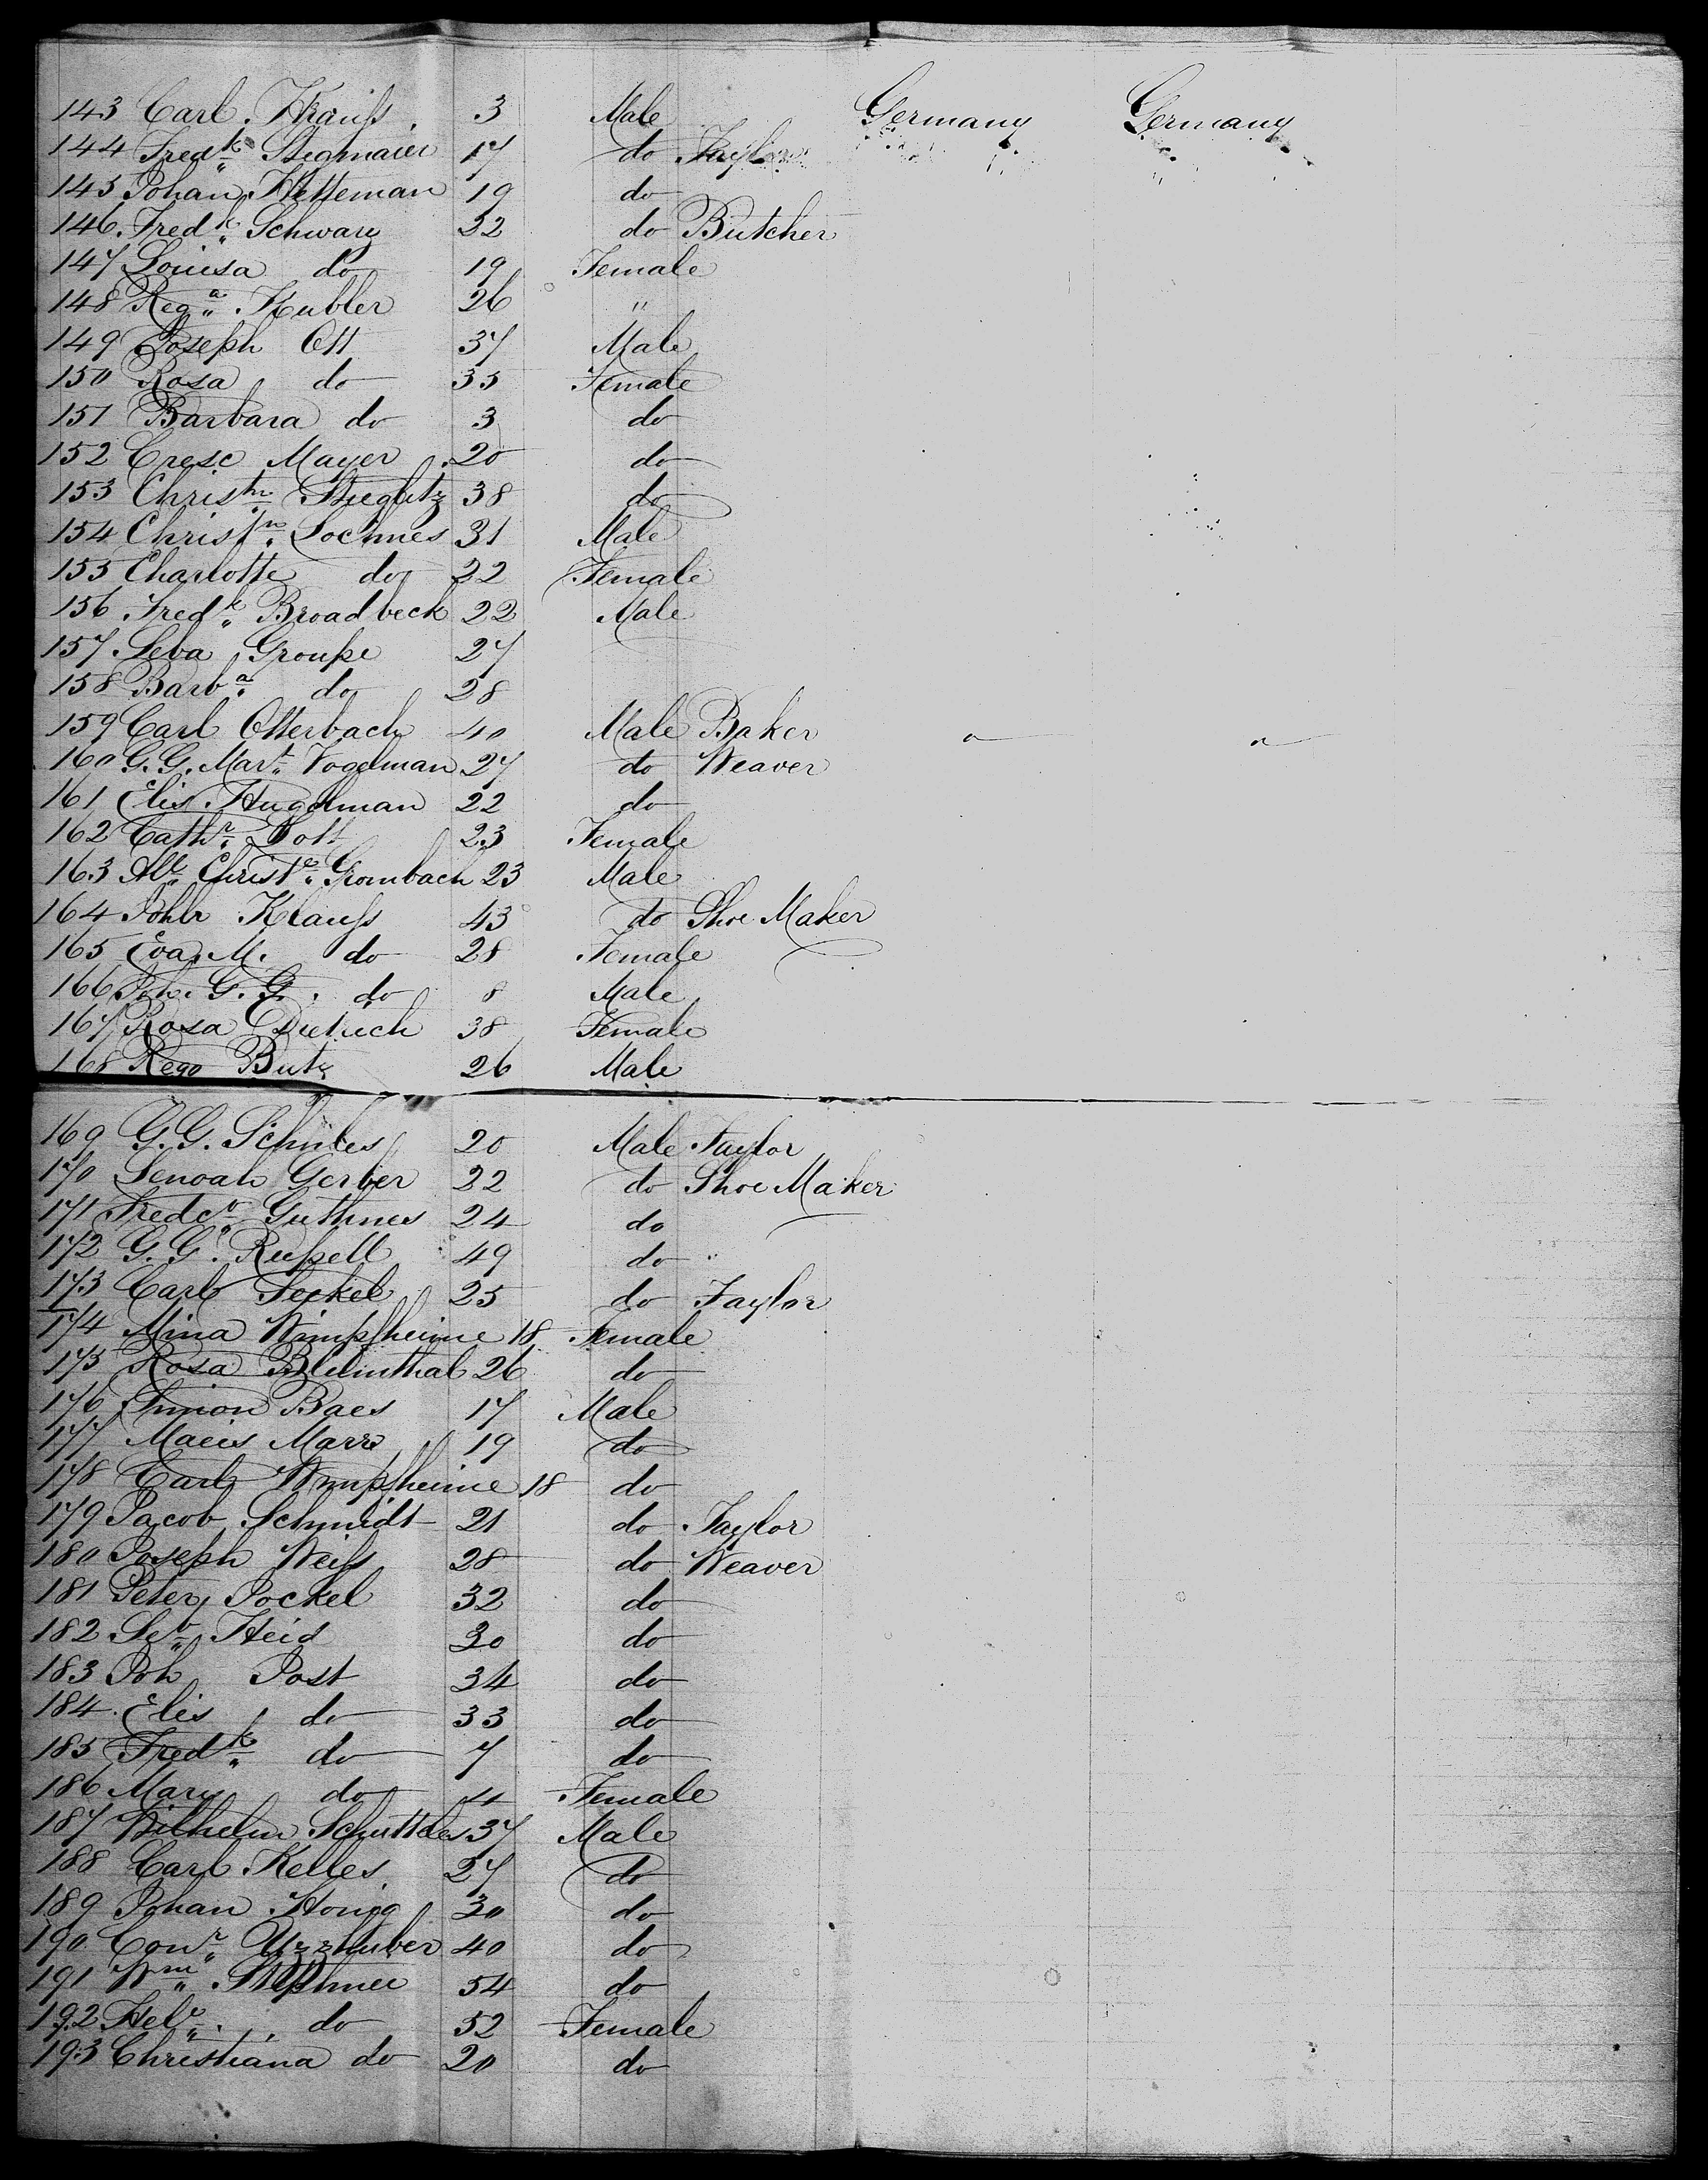 143 Carl Krauss 3 Male Germany Germany
144 Fredk Stegmaier 17 do Taylor
145 Johan Hetteman 19 do
146 Fredk Schwarz 32 do Butcher
147 Louisa do 19 Female
148 Rega Kubler 26 "
149 Joseph Ott 37 Male
150 Rosa do 35 Female
151 Barbara do 3 do
152 Cresc Mayer 20 do
153 Christn Stieglitz 38 do
154 Christn 31 Male
155 Charlotte do 22 Female
156 Fredk Broadbeck 22 Male
157 Seba 27
158 Barba do 28
159 Carl Otterbach 40 Male Baker " "
160 G. G. Mart Vogelman 27 do Weaver
161 Elis Hugelman 22 do
162 Cathr Dott 23 Female
163 Christe Grombach 23 Male
164 Klauss 43 do Shoe Maker
165 Eva M. do 28 Female
166 Joh. G. G. do 8 Male
167 Rosa Dietrich 38 Female
168 Rego Butz 26 Male
169 G. G. Schules 20 Male Taylor
170 Senoah Gerber 22 do Shoe Maker
171 Guthnes 24 do
172 G. G. Russell 49 do "
173 Carl Seckel 25 do Taylor
174 Mina Wimpfheime 18 Female
175 Rosa Bluminthal 26 do
176 Simon Baes 17 Male
177 Marx 19 do
178 Carl Wimpfheime 18 do
179 Jacob Schmidt 21 do Taylor
180 Joseph Weiss 28 do Weaver
181 Peter Jockel 32 do
182 Seb Heid 30 do
183 Joh Post 34 do
184 Elis do 33 do
185 Fredk do 7 do
186 Mary do 4 Female
187 Wilhelm 37 Male
188 Carl Kelles 27 do
189 Johan Honig 30 do
190 Conr Uzzhuber 40 do
191 Wm 54 do
192 do 52 Female
193 Christiana do 20 do